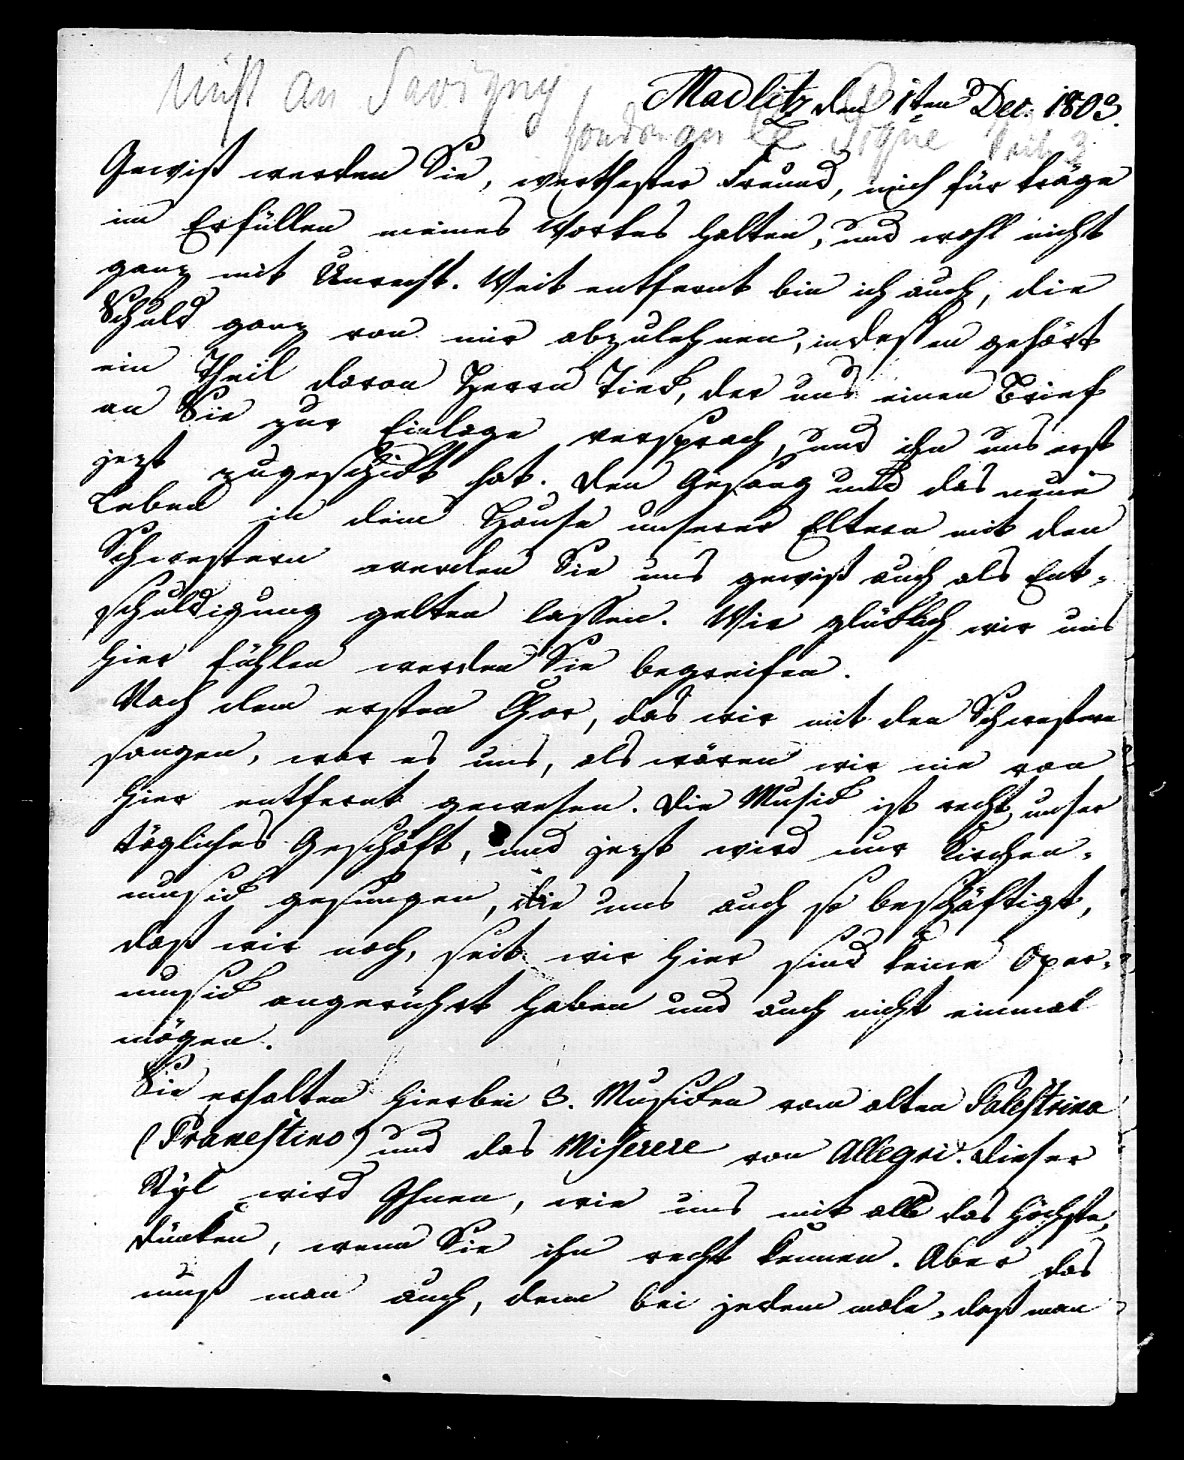 nicht an Savigny
sondern an
Madlitz den 1ten Dec. 1803.
Gewiß werden Sie, werthester Freund, mich für träge
im Erfüllen meines Wortes halten, und wohl nicht
ganz mit Unrecht. Weit entfernt bin ich auch, die
Schuld ganz von mir abzulehnen, indessen gehört
ein Theil davon Herrn Tieck, der uns einen Brief
an Sie zur Einlage versprach, und ihn uns erst
jezt zugeschickt hat. Den Gesang und das neue
Leben in dem Hause unserer Eltern mit den
Schwestern werden Sie uns gewiß auch als Ent-
schuldigung gelten lassen. Wie glüklich wir uns
hier fühlen werden Sie begreifen.
Nach dem ersten Chor, das wir mit den Schwestern
sangen, war es uns, als wären wir nie von
hier entfernt gewesen. Die Musick ist recht unser
tägliches Geschäft, und jezt wird nur Kirchen-
musick gesungen, die uns auch so beschäftigt,
daß wir noch, seit wir hier sind keine Oper-
musick angerührt haben und auch nicht einmal
mögen.
Sie erhalten hierbei 3. Musicken vom alten Palestrina
(Pranestino) und das Miserere von Allegri. Dieser
Styl wird Ihnen, wie uns mit alle das Höchste,
dünken, wenn Sie ihn recht kennen. Aber das
muß man auch, denn bei jedem male, daß man